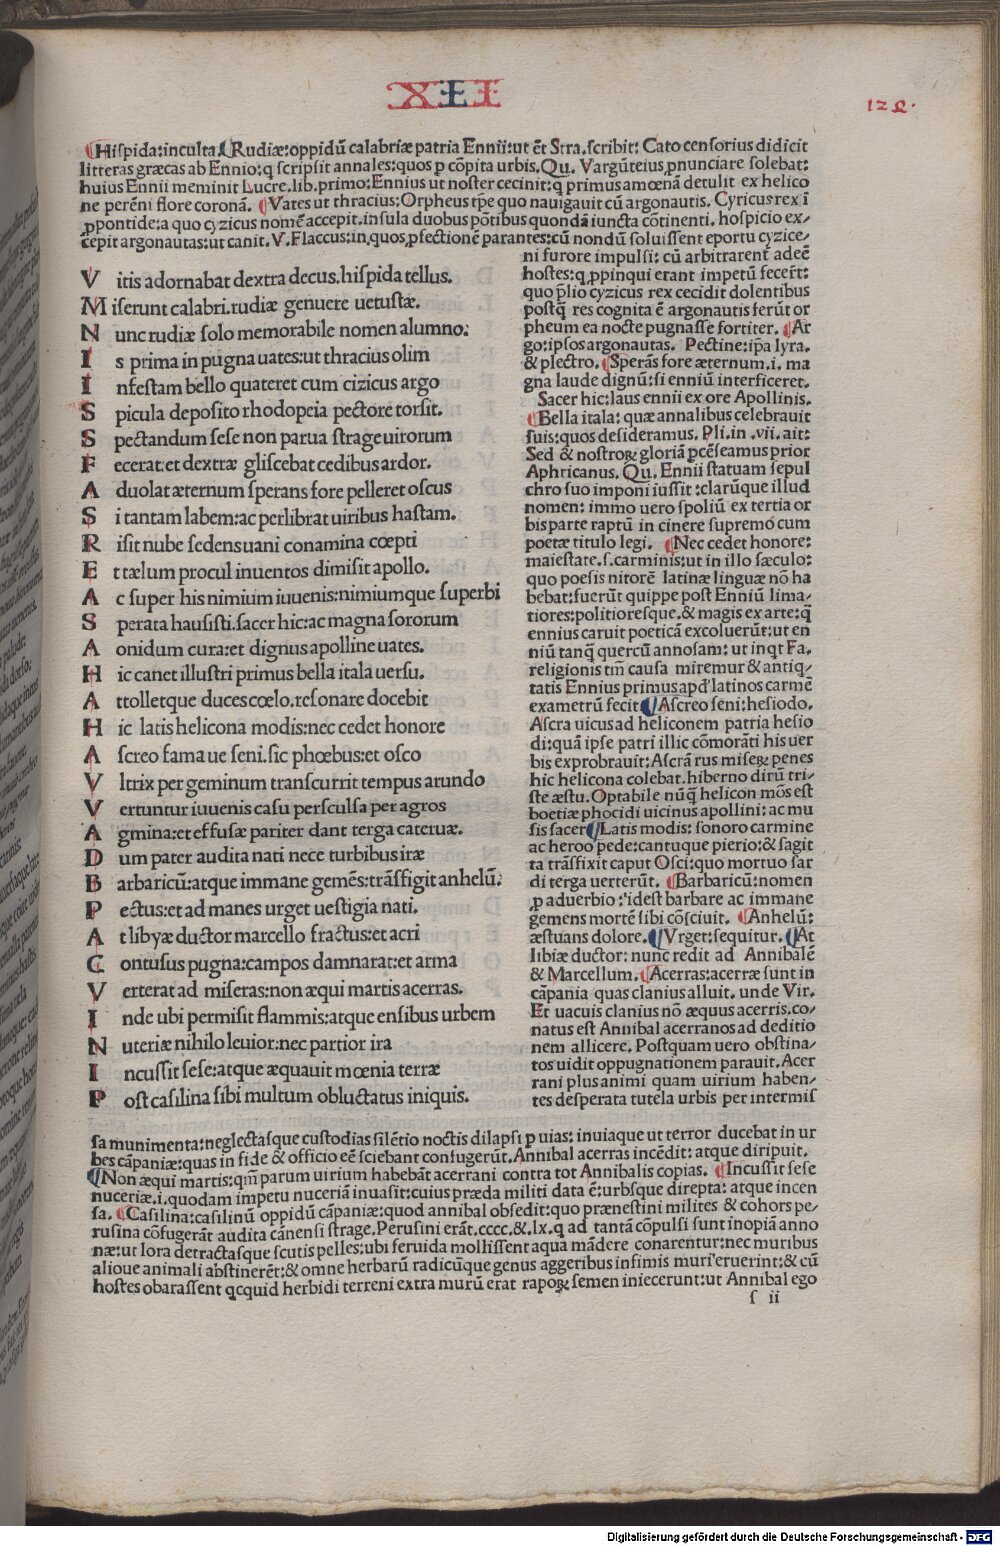 XII
124.
¶Hispida:inculta.¶Rudiæ:oppidū calabriæ patria Ennii:ut ēt Stra.scribit: Cato censorius didicit
litteras græcas ab Ennio:q scripsit annales:quos p cōpita urbis.Qu. Vargūteius ꝓnunciare solebat:
huius Ennii meminit Lucre.lib.primo:Ennius ut noster cecinit:q primus amœnā detulit ex helico
ne perēni flore coronā. ¶Vates ut thracius:Orpheus tp̄e quo nauigauit cū argonautis. Cyricus rex ī
ꝓpontide:a quo cyzicus nomē accepit.insula duobus pōtibus quondā iuncta cōtinenti. hospicio ex/
cepit argonautas:ut canit. V. Flaccus:in quos ꝓfectionē parantes:cū nondū soluissent eportu cyzice/
V itis adornabat dextra decus.hispida tellus.
M iserunt calabri.rudiæ genuere uetustæ.
N unc rudiæ solo memorabile nomen alumno:
I s prima in pugna uates:ut thracius olim
I nfestam bello quateret cum cizicus argo
S picula deposito rhodopeia pectore torsit.
S pectandum sese non parua strage uirorum
F ecerat:et dextræ gliscebat cedibus ardor.
A duolat æternum sperans fore pelleret oscus
S i tantam labem:ac perlibrat uiribus hastam.
R isit nube sedens uani conamina cœpti
E t tælum procul inuentos dimisit apollo.
A c super his nimium iuuenis:nimiumque superbi
S perata hausisti.sacer hic:ac magna sororum
A onidum cura:et dignus apolline uates.
H ic canet illustri primus bella itala uersu.
A ttolletque duces cœlo.resonare docebit
H ic latis helicona modis:nec cedet honore
A screo fama ue seni.sic phœbus:et osco
V ltrix per geminum transcurrit tempus arundo
V ertuntur iuuenis casu perculsa per agros
A gmina:et effusæ pariter dant terga cateruæ.
D um pater audita nati nece turbibus iræ
B arbaricū:atque immane gemēs:trāsfigit anhelū.
P ectus:et ad manes urget uestigia nati.
A t libyæ ductor marcello fractus:et acri
C ontusus pugna:campos damnarat:et arma
V erterat ad miseras:non æqui martis acerras.
I nde ubi permisit flammis:atque ensibus urbem
N uteriæ nihilo leuior:nec partior ira
I ncussit sese:atque æquauit mœnia terræ
P ost casilina sibi multum obluctatus iniquis.
ni furore impulsi: cū arbitrarent᷑ adeē
hostes:q ꝓpinqui erant impetū fecer̄t:
quo p̄lio cyzicus rex cecidit dolentibus
postq̄ res cognita ē argonautis fer̄ut or
pheum ea nocte pugnasse fortiter. ¶Ar
go:ipsos argonautas. Pectine:ip̄a lyra.
& plectro. ¶Sperās fore æternum.i. ma
gna laude dignū:si enniū interficeret.
Sacer hic:laus ennii ex ore Apollinis.
¶Bella itala: quæ annalibus celebrauit
suis:quos desideramus. Pli.in .vii. ait:
Sed & nostroꝝ gloriā p̄cēseamus prior
Aphricanus. Qu. Ennii statuam sepul
chro suo imponi iussit :clarūque illud
nomen: immo uero spoliū ex tertia or
bis parte raptū in cinere supremo cum
poetæ titulo legi. ¶Nec cedet honore:
maiestate.s.carminis:ut in illo sæculo:
quo poesis nitorē latinæ linguæ nō ha
bebat:fuerūt quippe post Enniū lima/
tiores:politioresque.& magis ex arte:q̄
ennius caruit poeticā excoluerūt:ut en
niū tanq̄ quercū annosam: ut inqt Fa.
religionis tm̄ causa miremur & antiq/
tatis Ennius primus apd' latinos carmē
exametrū fecit ¶Ascreo seni:hesiodo.
Ascra uicus ad heliconem patria hesio
di:quā ipse patri illic cōmorāti his uer
bis exprobrauit: Ascrā rus miseꝝ penes
hic helicona colebat.hiberno dirū tri/
ste æstu.Optabile nūq̄ helicon mōs est
boetiæ phocidi uicinus apollini: ac mu
sis sacer ¶Latis modis: sonoro carmine
ac heroo pede:cantuque pierio:& sagit
ta trāsfixit caput Osci:quo mortuo sar
di terga uerterūt. ¶Barbaricū:nomen
ꝓ aduerbio :idest barbare ac immane
gemens mortē sibi cōsciuit. ¶Anhelū:
æstuans dolore.¶Vrget:sequitur.¶At
libiæ ductor: nunc redit ad Annibalē
& Marcellum.¶Acerras:acerræ sunt in
cāpania quas clanius alluit. unde Vir.
Et uacuis clanius nō æquus acerris.co/
natus est Annibal acerranos ad deditio
nem allicere. Postquam uero obstina/
tos uidit oppugnationem parauit. Acer
rani plus animi quam uirium haben/
tes desperata tutela urbis per intermis
sa munimenta:neglectasque custodias silētio noctis dilapsi p uias: inuiaque ut terror ducebat in ur
bes cāpaniæ:quas in fide & officio eē sciebant confugerūt. Annibal acerras incēdit: atque diripuit.
¶Non æqui martis:qm̄ parum uirium habebāt acerrani contra tot Annibalis copias. ¶Incussit sese
nuceriæ.i.quodam impetu nuceriā inuasit:cuius præda militi data ē:urbsque direpta: atque incen
sa. ¶Casilina:casilinū oppidū cāpaniæ:quod annibal obsedit:quo prænestini milites & cohors pe/
rusina cōfugerāt audita cānensi strage. Perusini erāt.cccc.&.lx.q ad tantā cōpulsi sunt inopiā anno
næ:ut lora detractasque scutis pelles:ubi feruida mollissent aqua mādere conarentur:nec muribus
alioue animali abstinerēt:& omne herbarū radicūque genus aggeribus infimis muri eruerint:& cū
hostes obarassent qcquid herbidi terreni extra murū erat rapoꝝ semen iniecerunt:ut Annibal ego
s ii
Digitalisierung gefördert durch die Deutsche Forschungsgemeinschaft - DFG